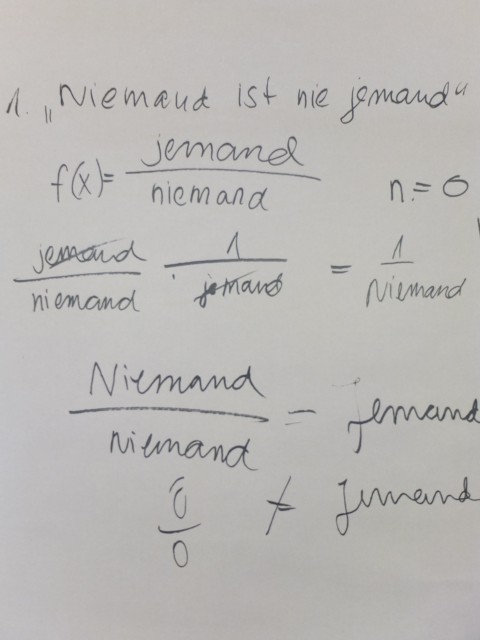 1. „Niemand ist nie jemand“
f(x)= jemand / niemand n.= 0
jemand / niemand · 1 / jemand = 1 / Niemand
Niemand / niemand = jemand
0 / 0 ≠ Jemand